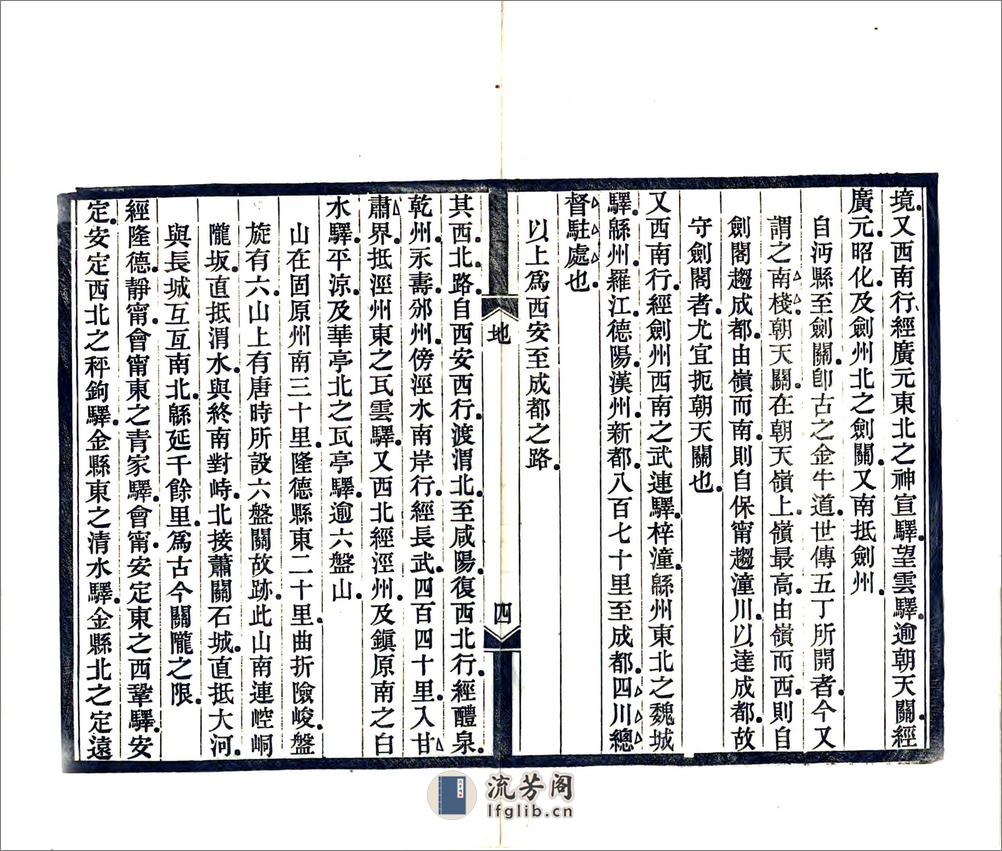 境又西南行經廣元東北之神宣驛望雲驛逾朝天關經
廣元昭化及劍州北之劍關又南抵劍州
自沔縣至劍關卽古之金牛道世傳五丁所開者今又
謂之南棧朝天關在朝天嶺上嶺最高由嶺而西則自
劍閣趨成都由嶺而南則自保甯趨潼川以達成都故
守劍閣者尤宜扼朝天關也
又西南行經劍州西南之武連驛梓潼緜州東北之魏城
驛緜州羅江德陽漢州新都八百七十里至成都四川總
督駐處也
以上爲西安至成都之路
地
四
其西北路自西安西行渡渭北至咸陽復西北行經醴泉
乾州永壽邠州傍涇水南岸行經長武四百四十里入甘
肅界抵涇州東之瓦雲驛又西北經涇州及鎮原南之白
水驛平涼及華亭北之瓦亭驛逾六盤山
山在固原州南三十里隆德縣東二十里曲折險峻盤
旋有六山上有唐時所設六盤關故跡此山南連崆峒
隴坂直抵渭水與終南對峙北接蕭關石城直抵大河
與長城互亙南北緜延千餘里爲古今關隴之限
經隆德靜甯會甯東之青家驛會甯安定東之西鞏驛安
定安定西北之秤鉤驛金縣東之清水驛金縣北之定遠
流芳阁
lfglib.cn